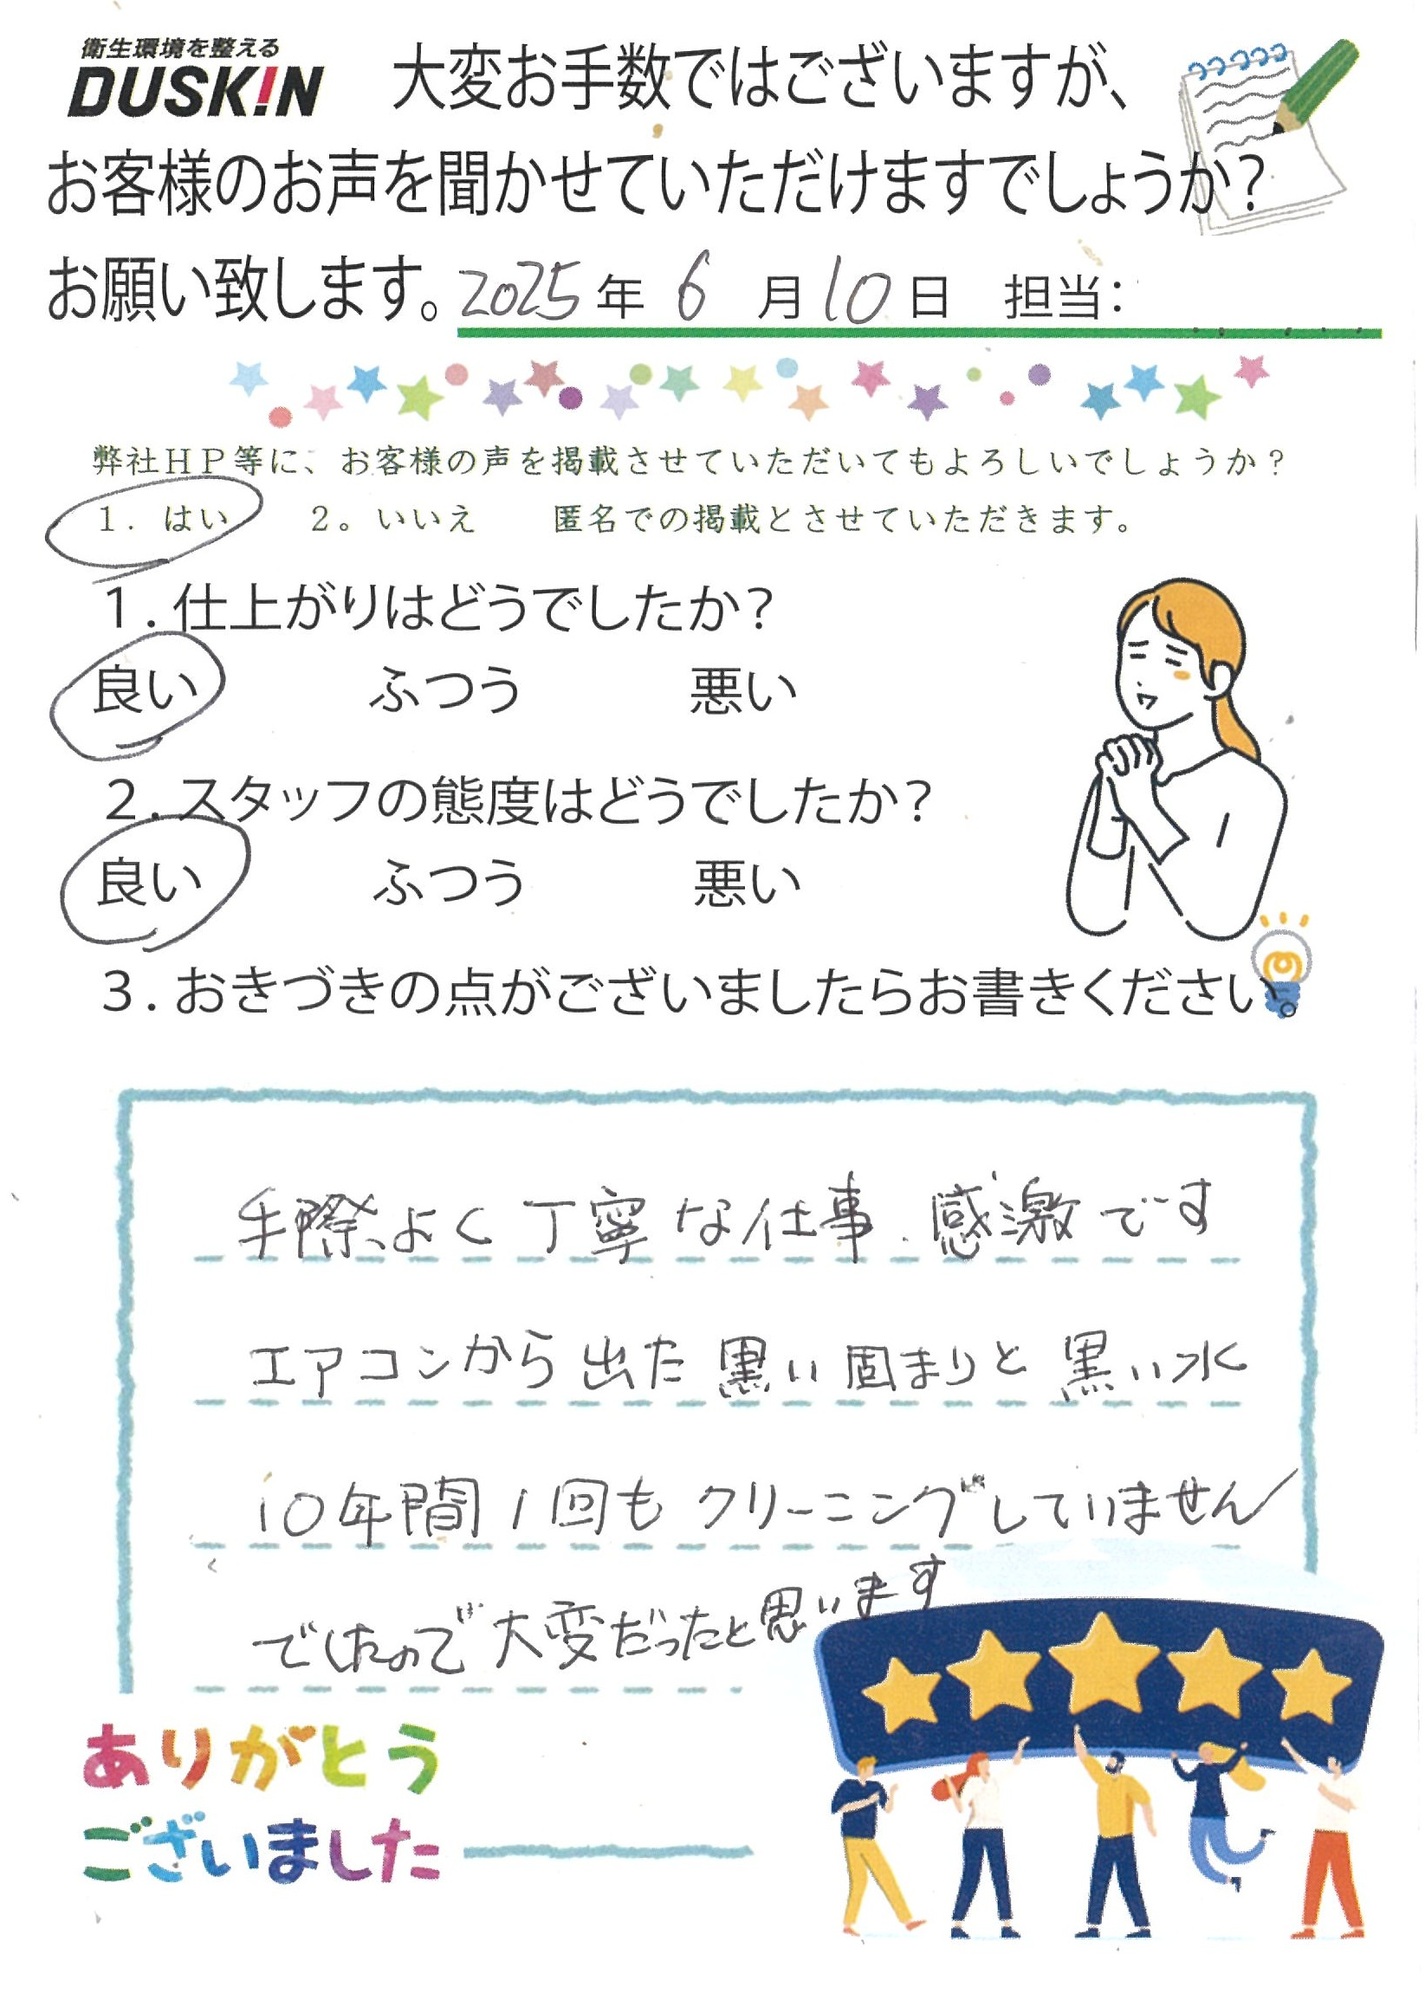 衛生環境を整える
DUSKIN
大変お手数ではございますが、
お客様のお声を聞かせていただけますでしょうか?
お願い致します。2025年 6 月10日 担当:
弊社HP等に、お客様の声を掲載させていただいてもよろしいでしょうか?
1. はい 2。いいえ 匿名での掲載とさせていただきます。
1.仕上がりはどうでしたか?
良い ふつう 悪い
2.スタッフの態度はどうでしたか?
良い ふつう 悪い
3.おきづきの点がございましたらお書きください。
手際よく丁寧な仕事.感激です
エアコンから出た黒い固まりと黒い水
10年間1回もクリーニングしていません
でしたので大変だったと思います
ありがとう
ございました